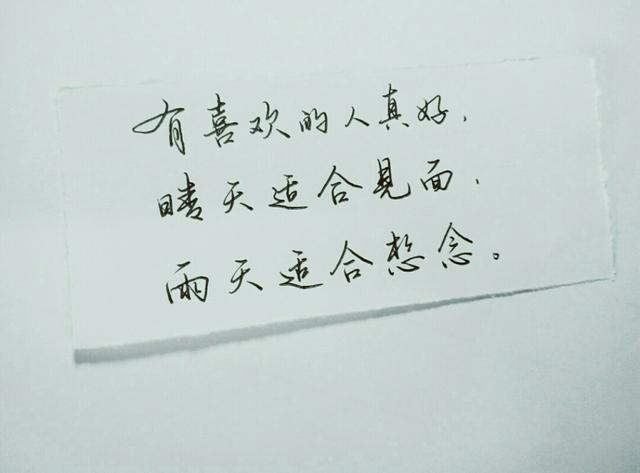 有喜欢的人真好，
晴天适合見面，
雨天适合想念。